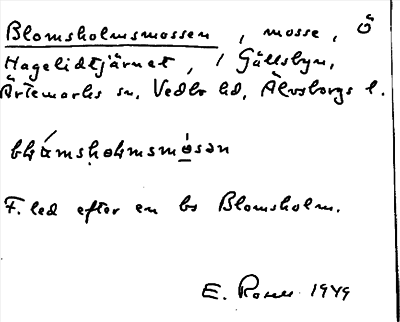 Blomsholmsmossen, mosse, Ö
Hagelidtjärnet, i Gällsbyn,
Ärtemarks sn, Vedbo hd, Älvsborgs l.
F. led efter en bs Blomsholm.
E. 1949